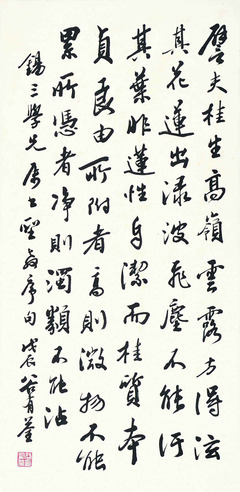 譬夫桂生高嶺雲露方得泫
其花蓮出淥波飛塵不能汙
其葉非蓮性自潔而桂質本
貞良由所附者高則微物不能
累所憑者净則濁類不能沾
錫三學兄屬書聖教序句 戊辰